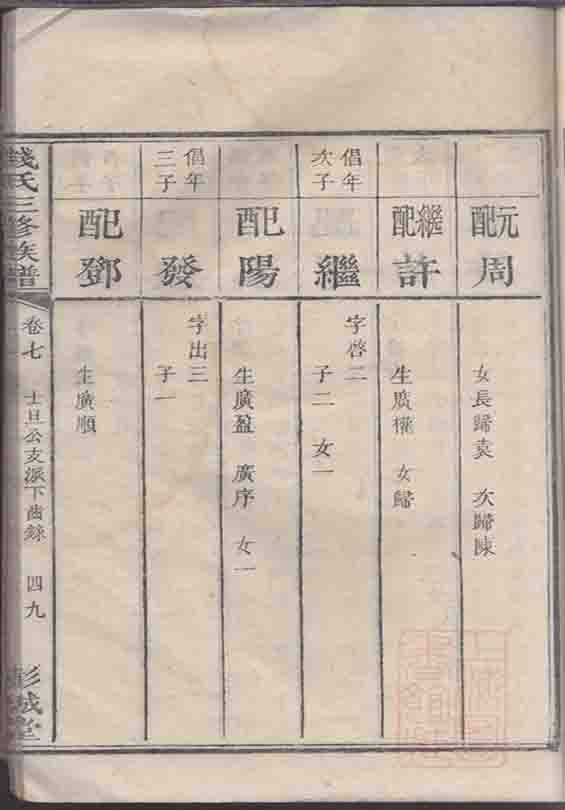 元配
周
女長歸袁 次歸陳
繼配
許
生廣權 女歸
倡年
次子
繼
字啓二
子二 女一
配
陽
生廣盈 廣序 女一
倡年
三子
發
字出三
子一
配
鄧
生廣順
錢氏三修族譜
卷七
士旦公支派下齒錄
四九
彭城堂